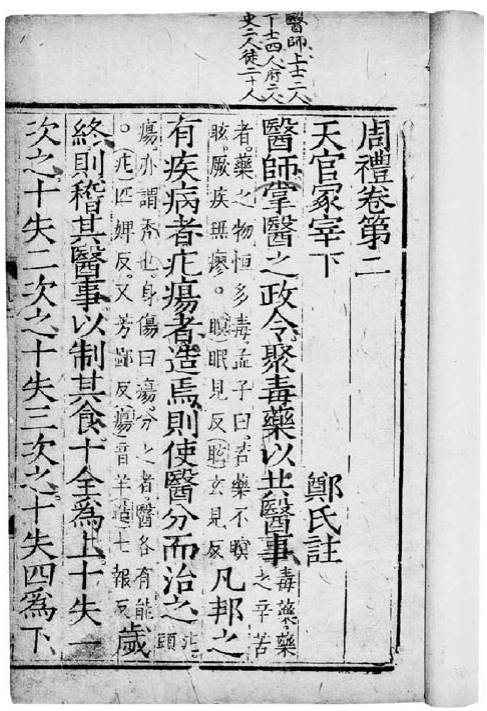 醫師上士二人
下士四人府二人
史二人徒二十人
周禮卷第二
天官冢宰下　鄭氏註
醫師掌醫之政令聚毒藥以共醫事毒藥藥之辛苦
者藥之物恒多毒孟子曰若藥不瞑
眩厥疾無瘳。瞑眠見反眩玄見反凡邦之
有疾病者疕瘍者造焉則使醫分而治之疕頭
瘍亦謂禿也身傷曰瘍分之者醫各有能
。疕匹婢反又芳鄙反瘍音羊造七報反歲
終則稽其醫事以制其食十全爲上十失一
次之十失二次之十失三次之十失四爲下